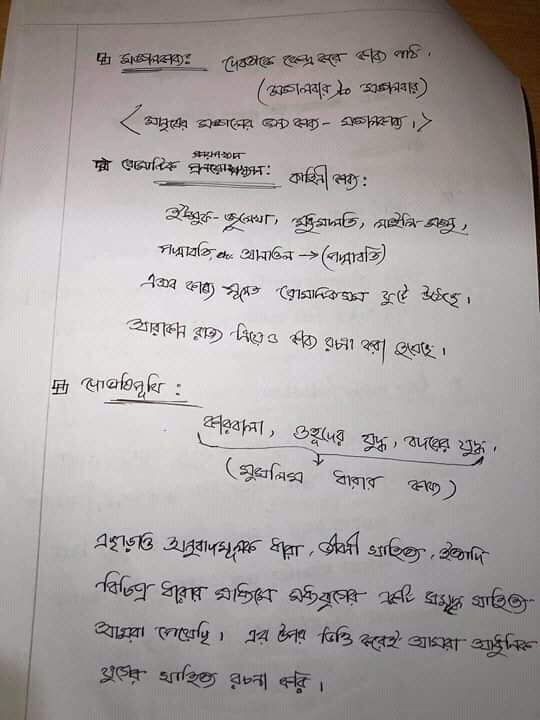 মঙ্গলকাব্য: দেবতাকে কেন্দ্র করে কাব্য পাঠ।
(মঙ্গলবার to মঙ্গলবার)
< মানুষের মঙ্গলের জন্য কাব্য - মঙ্গলকাব্য। >
রোমান্টিক প্রণয়োপাখ্যান: কাহিনী কাব্য:
ইউসুফ-জুলেখা, মধুমালতি, লাইলি মজনু,
পদ্মাবতি, etc আলাওল → (পদ্মাবতি)
এসব কাব্যে মূলত রোমান্টিকতা ফুটে উঠেছে।
আরাকান রাজ্য নিয়েও কাব্য রচনা করা হয়েছে।
দোভাষীপুঁথি:
কারবালা, ওহুদের যুদ্ধ, বদরের যুদ্ধ,
(মুসলিম ধারার কাব্য)
এছাড়াও অনুবাদমূলক ধারা, জীবনী সাহিত্য, ইত্যাদি
বিভিন্ন ধারার মাধ্যমে মধ্যযুগের একটি সমৃদ্ধ সাহিত্য
আমরা পেয়েছি। এর উপর ভিত্তি করেই আমরা আধুনিক
যুগের সাহিত্য রচনা করি।